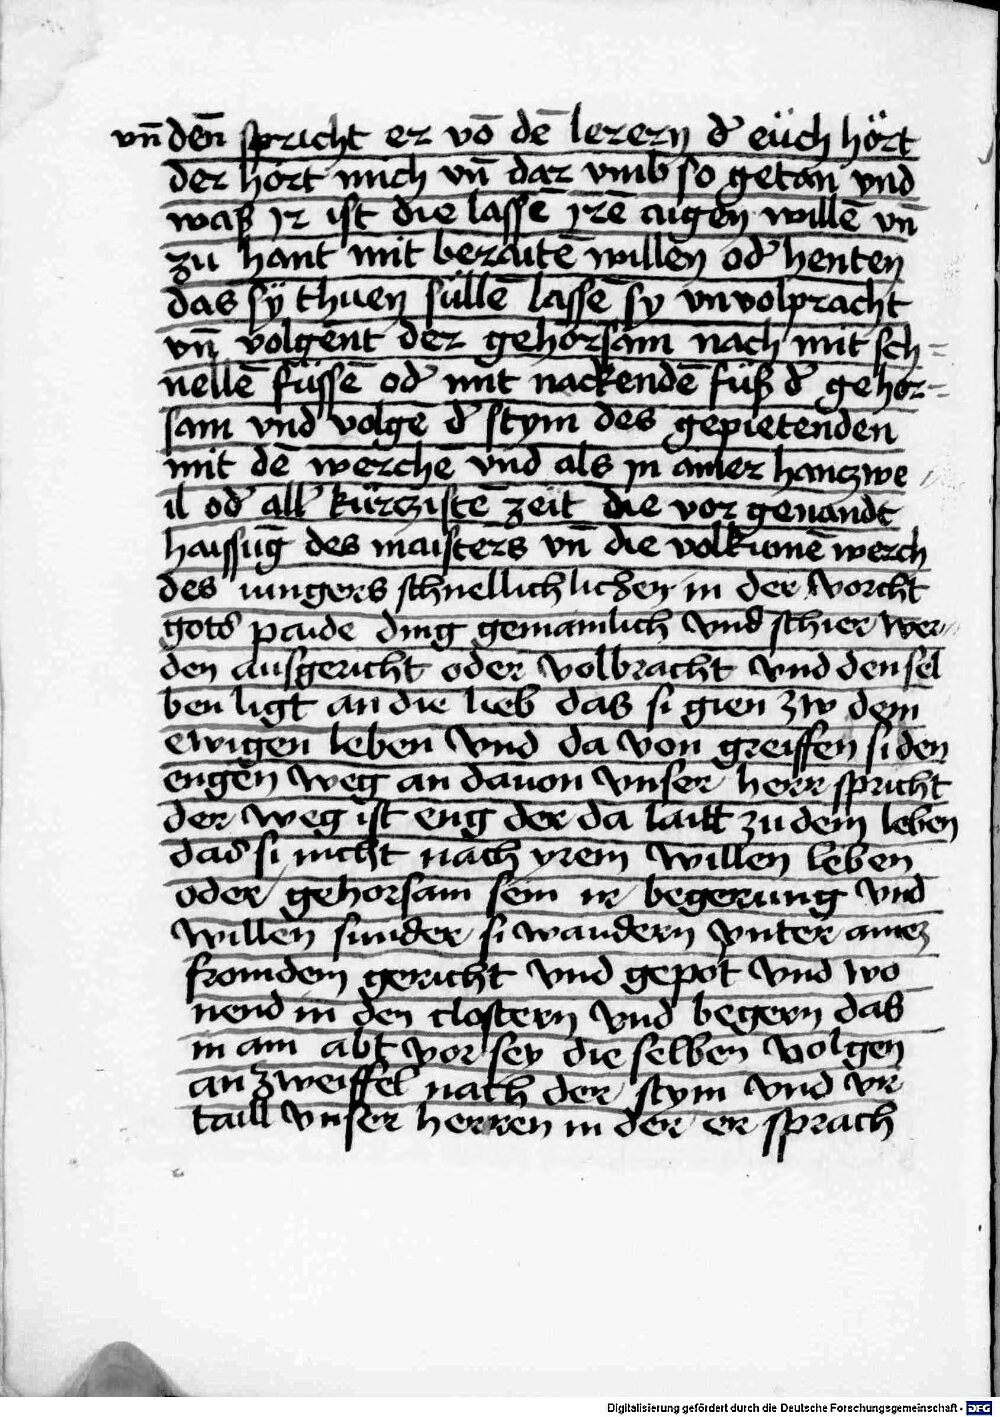 vn̄ den̄ spricht er võ dē lerern dˀ eüch hört
der hört mich vn̄ dar vmb so getan vnd
waß jr ist die lassē jrē aigen willē vn̄
zu hant mit beraitē willen odˀ henten
das sÿ thuen süllē lassē sy vnvolpracht
vn̄ volgent der gehorsam nach mit sch=
nellē füssē odˀ mit nackendē füß dˀ gehor=
sam vnd volgē dˀ stym des gepietenden
mit dē werche vnd als jn ainer hanczwe
il odˀ allˀ kürczistē zeit die vor genandt
haissūg des maisters vn̄ die volkumē werch
des iungers schnellichlichen in der vorcht
gots paide ding gemainlich vnd schier wer
den ausgericht oder volbracht vnd den sel
ben ligt an die lieb das si gien zw dem
ewigen leben vnd da von greiffen si den
engen weg an dauon vnser herr spricht
der weg ist eng der da laitt zu dem leben
das si nicht nach yrem willen leben
oder gehorsam sein ir begerung vnd
willen sunder si wandern vnter ainez
fromdem gericht vnd gepot vnd wo
nend in den clostern vnd begern das
in ain abt vor sey die selben volgen
an zweiffel nach der stym vnd vr
taill vnser herren in der er sprach
Digitalisierung gefördert durch die Deutsche Forschungsgemeinschaft - DFG